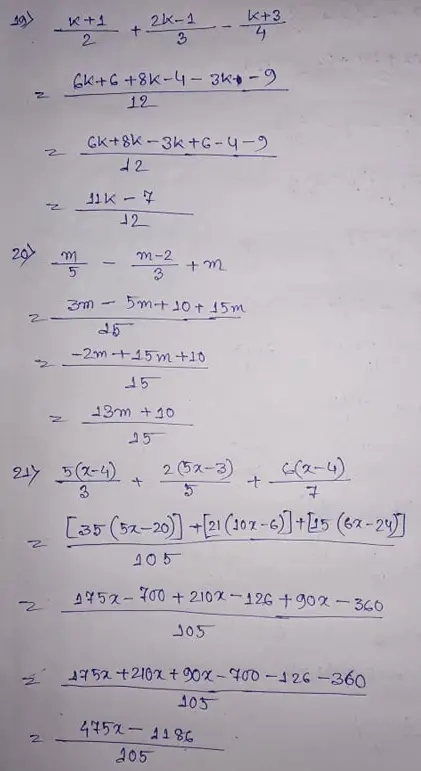 19) (k+1)/2 + (2k-1)/3 - (k+3)/4
= (6k+6+8k-4-3k-9)/12
= (6k+8k-3k+6-4-9)/12
= (11k-7)/12
20) m/5 - (m-2)/3 + m
= (3m-5m+10+15m)/15
= (-2m+15m+10)/15
= (13m+10)/15
21) 5(x-4)/3 + 2(5x-3)/5 + 6(x-4)/7
= ([35(5x-20)]+[21(10x-6)]+[15(6x-24)])/105
= (175x-700+210x-126+90x-360)/105
= (175x+210x+90x-700-126-360)/105
= (475x-1186)/105